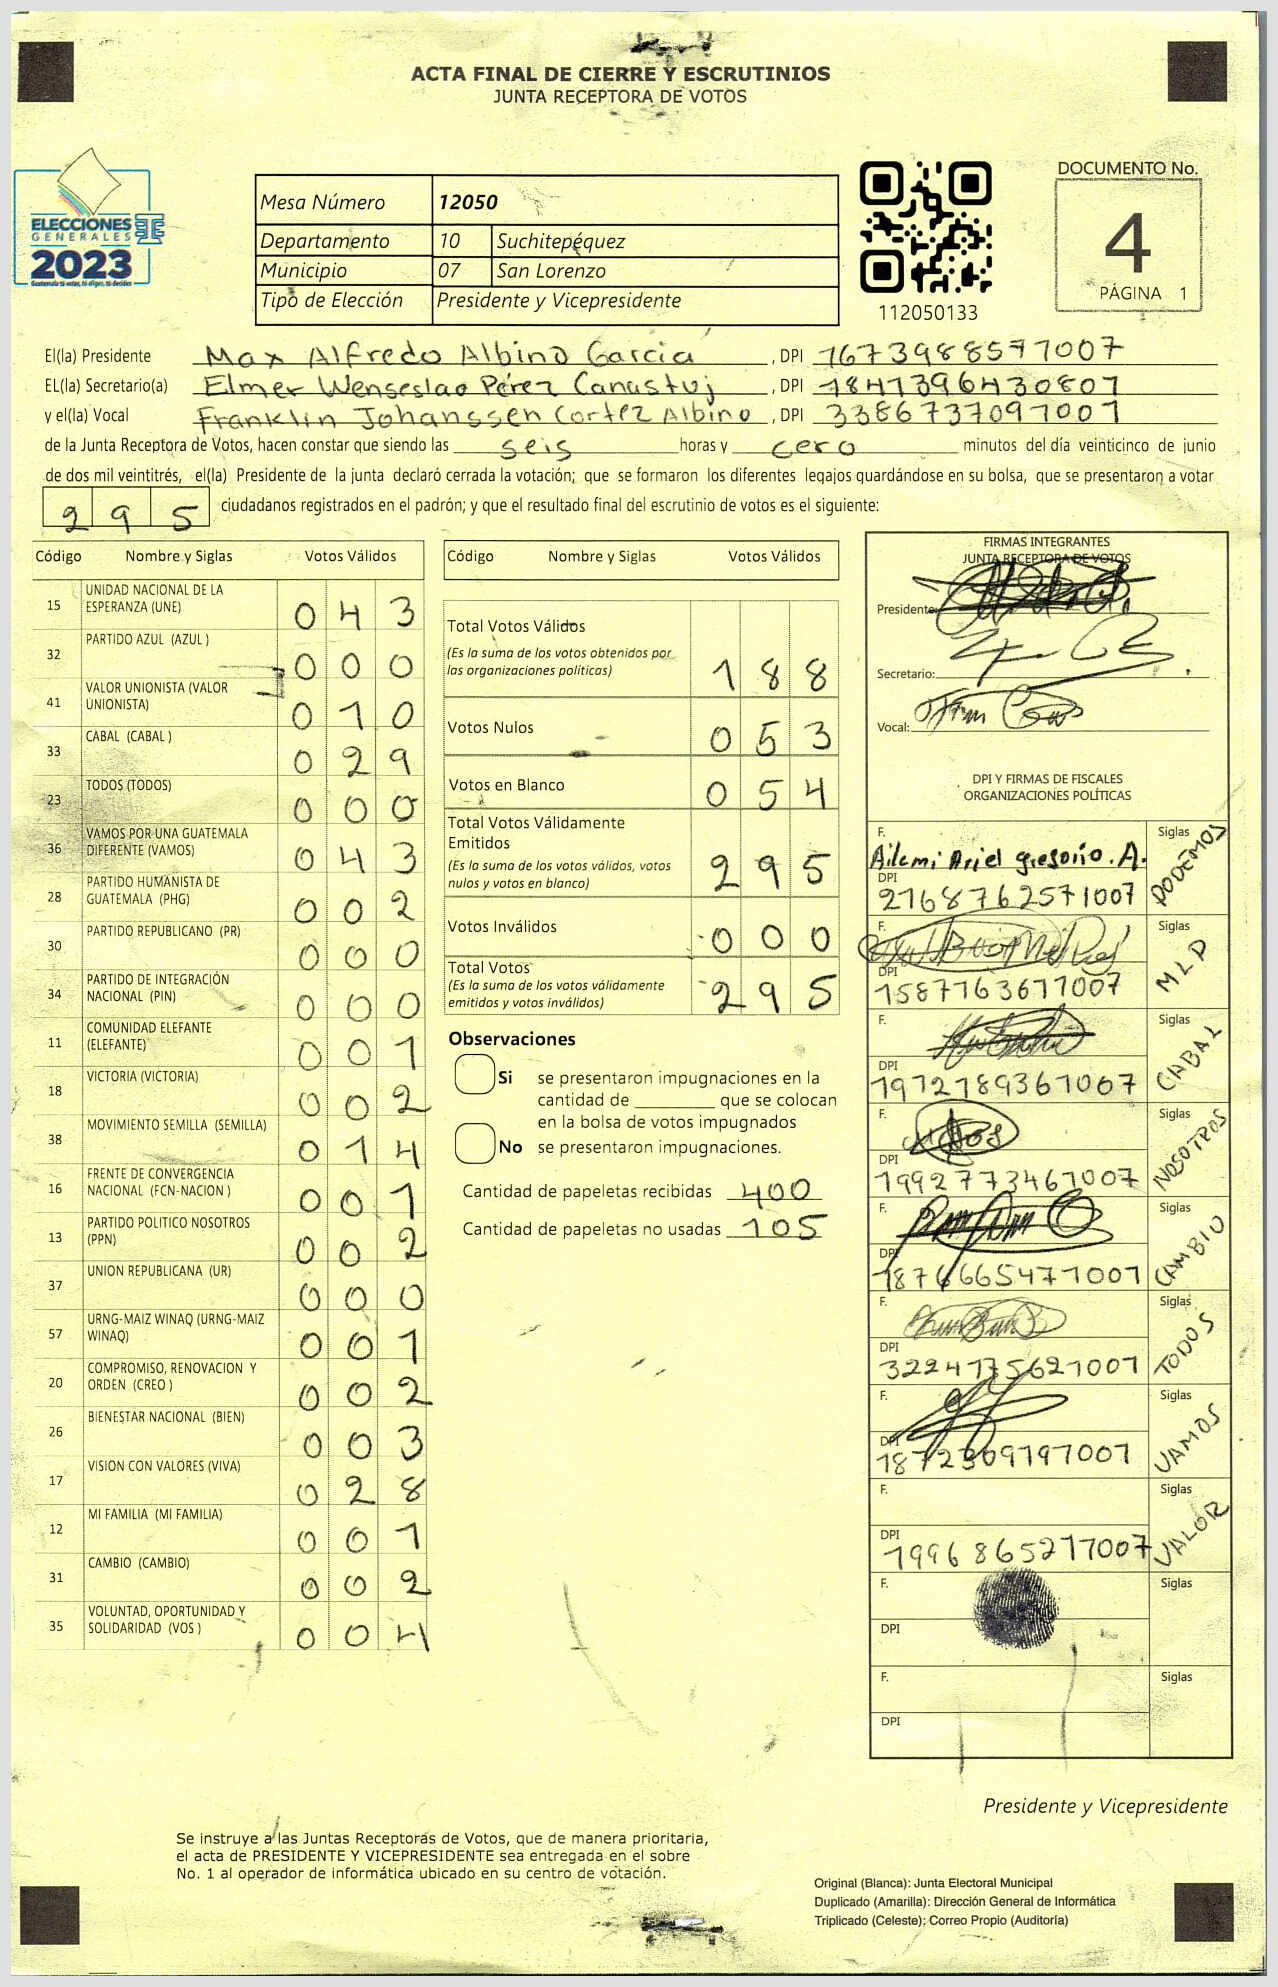 ACTA FINAL DE CIERRE Y ESCRUTINIOS
JUNTA RECEPTORA DE VOTOS
ELECCIONES
GENERALES
2023
Mesa Número 12050
Departamento 10 Suchitepéquez
Municipio 07 San Lorenzo
Tipo de Elección Presidente y Vicepresidente
112050133
DOCUMENTO No.
4
PÁGINA 1
El(la) Presidente Max Alfredo Albino Garcia, DPI 1673988571007
EL(la) Secretario(a) Elmer Wenseslao Pérez Canastuj, DPI 1841396430801
y el(la) Vocal Franklin Johanssen Cortez Albino, DPI 3386737091001
de la Junta Receptora de Votos, hacen constar que siendo las seis horas y cero minutos del día veinticinco de junio
de dos mil veintitrés, el(la) Presidente de la junta declaró cerrada la votación; que se formaron los diferentes legajos guardándose en su bolsa, que se presentaron a votar
295 ciudadanos registrados en el padrón; y que el resultado final del escrutinio de votos es el siguiente:
Código Nombre y Siglas Votos Válidos
15 UNIDAD NACIONAL DE LA ESPERANZA (UNE) 043
32 PARTIDO AZUL (AZUL ) 000
41 VALOR UNIONISTA (VALOR UNIONISTA) 010
33 CABAL (CABAL ) 029
23 TODOS (TODOS) 000
36 VAMOS POR UNA GUATEMALA DIFERENTE (VAMOS) 043
28 PARTIDO HUMANISTA DE GUATEMALA (PHG) 002
30 PARTIDO REPUBLICANO (PR) 000
34 PARTIDO DE INTEGRACIÓN NACIONAL (PIN) 000
11 COMUNIDAD ELEFANTE (ELEFANTE) 001
18 VICTORIA (VICTORIA) 002
38 MOVIMIENTO SEMILLA (SEMILLA) 014
16 FRENTE DE CONVERGENCIA NACIONAL (FCN-NACION ) 001
13 PARTIDO POLITICO NOSOTROS (PPN) 002
37 UNION REPUBLICANA (UR) 000
57 URNG-MAIZ WINAQ (URNG-MAIZ WINAQ) 001
20 COMPROMISO, RENOVACION Y ORDEN (CREO ) 002
26 BIENESTAR NACIONAL (BIEN) 003
17 VISION CON VALORES (VIVA) 028
12 MI FAMILIA (MI FAMILIA) 001
31 CAMBIO (CAMBIO) 002
35 VOLUNTAD, OPORTUNIDAD Y SOLIDARIDAD (VOS ) 004
Código Nombre y Siglas Votos Válidos
Total Votos Válidos
(Es la suma de los votos obtenidos por
las organizaciones políticas) 188
Votos Nulos 053
Votos en Blanco 054
Total Votos Válidamente
Emitidos
(Es la suma de los votos válidos, votos
nulos y votos en blanco) 295
Votos Inválidos 000
Total Votos
(Es la suma de los votos válidamente
emitidos y votos inválidos) 295
Observaciones
Si se presentaron impugnaciones en la
cantidad de ________ que se colocan
en la bolsa de votos impugnados
No se presentaron impugnaciones.
Cantidad de papeletas recibidas 400
Cantidad de papeletas no usadas 105
FIRMAS INTEGRANTES
JUNTA RECEPTORA DE VOTOS
Presidente:
Secretario:
Vocal:
DPI Y FIRMAS DE FISCALES
ORGANIZACIONES POLÍTICAS
F. Siglas
Ailemi Ariel gregorio. A. PODEMOS
DPI
2168762571007
F. Siglas
MLP
DPI
1587763671007
F. Siglas
CABAL
DPI
1972189361007
F. Siglas
NOSOTROS
DPI
1992773461007
F. Siglas
CAMBIO
DPI
1876665471001
F. Siglas
TODOS
DPI
3224175621001
F. Siglas
VAMOS
DPI
1872309191001
F. Siglas
VALOR
DPI
1996865211007
F. Siglas
DPI
F. Siglas
DPI
Presidente y Vicepresidente
Se instruye a las Juntas Receptoras de Votos, que de manera prioritaria,
el acta de PRESIDENTE Y VICEPRESIDENTE sea entregada en el sobre
No. 1 al operador de informática ubicado en su centro de votación.
Original (Blanca): Junta Electoral Municipal
Duplicado (Amarilla): Dirección General de Informática
Triplicado (Celeste): Correo Propio (Auditoría)